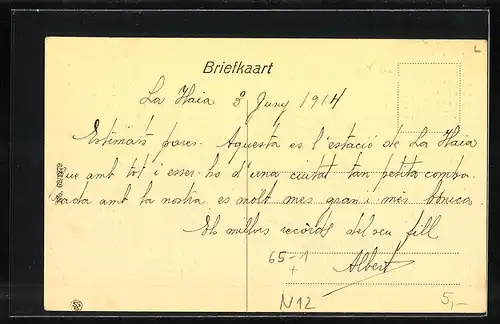 Briefkaart
La Haia 3 Juny 1914
Estimats pares. Aquesta es l'estació de La Haia
que amb tot i esser-ho d'una ciutat tan petita compa-
rada amb la nostra es molt mes gran i mes bonica
Els millors records del seu fill
Albert
65-1
+
N12
5,-